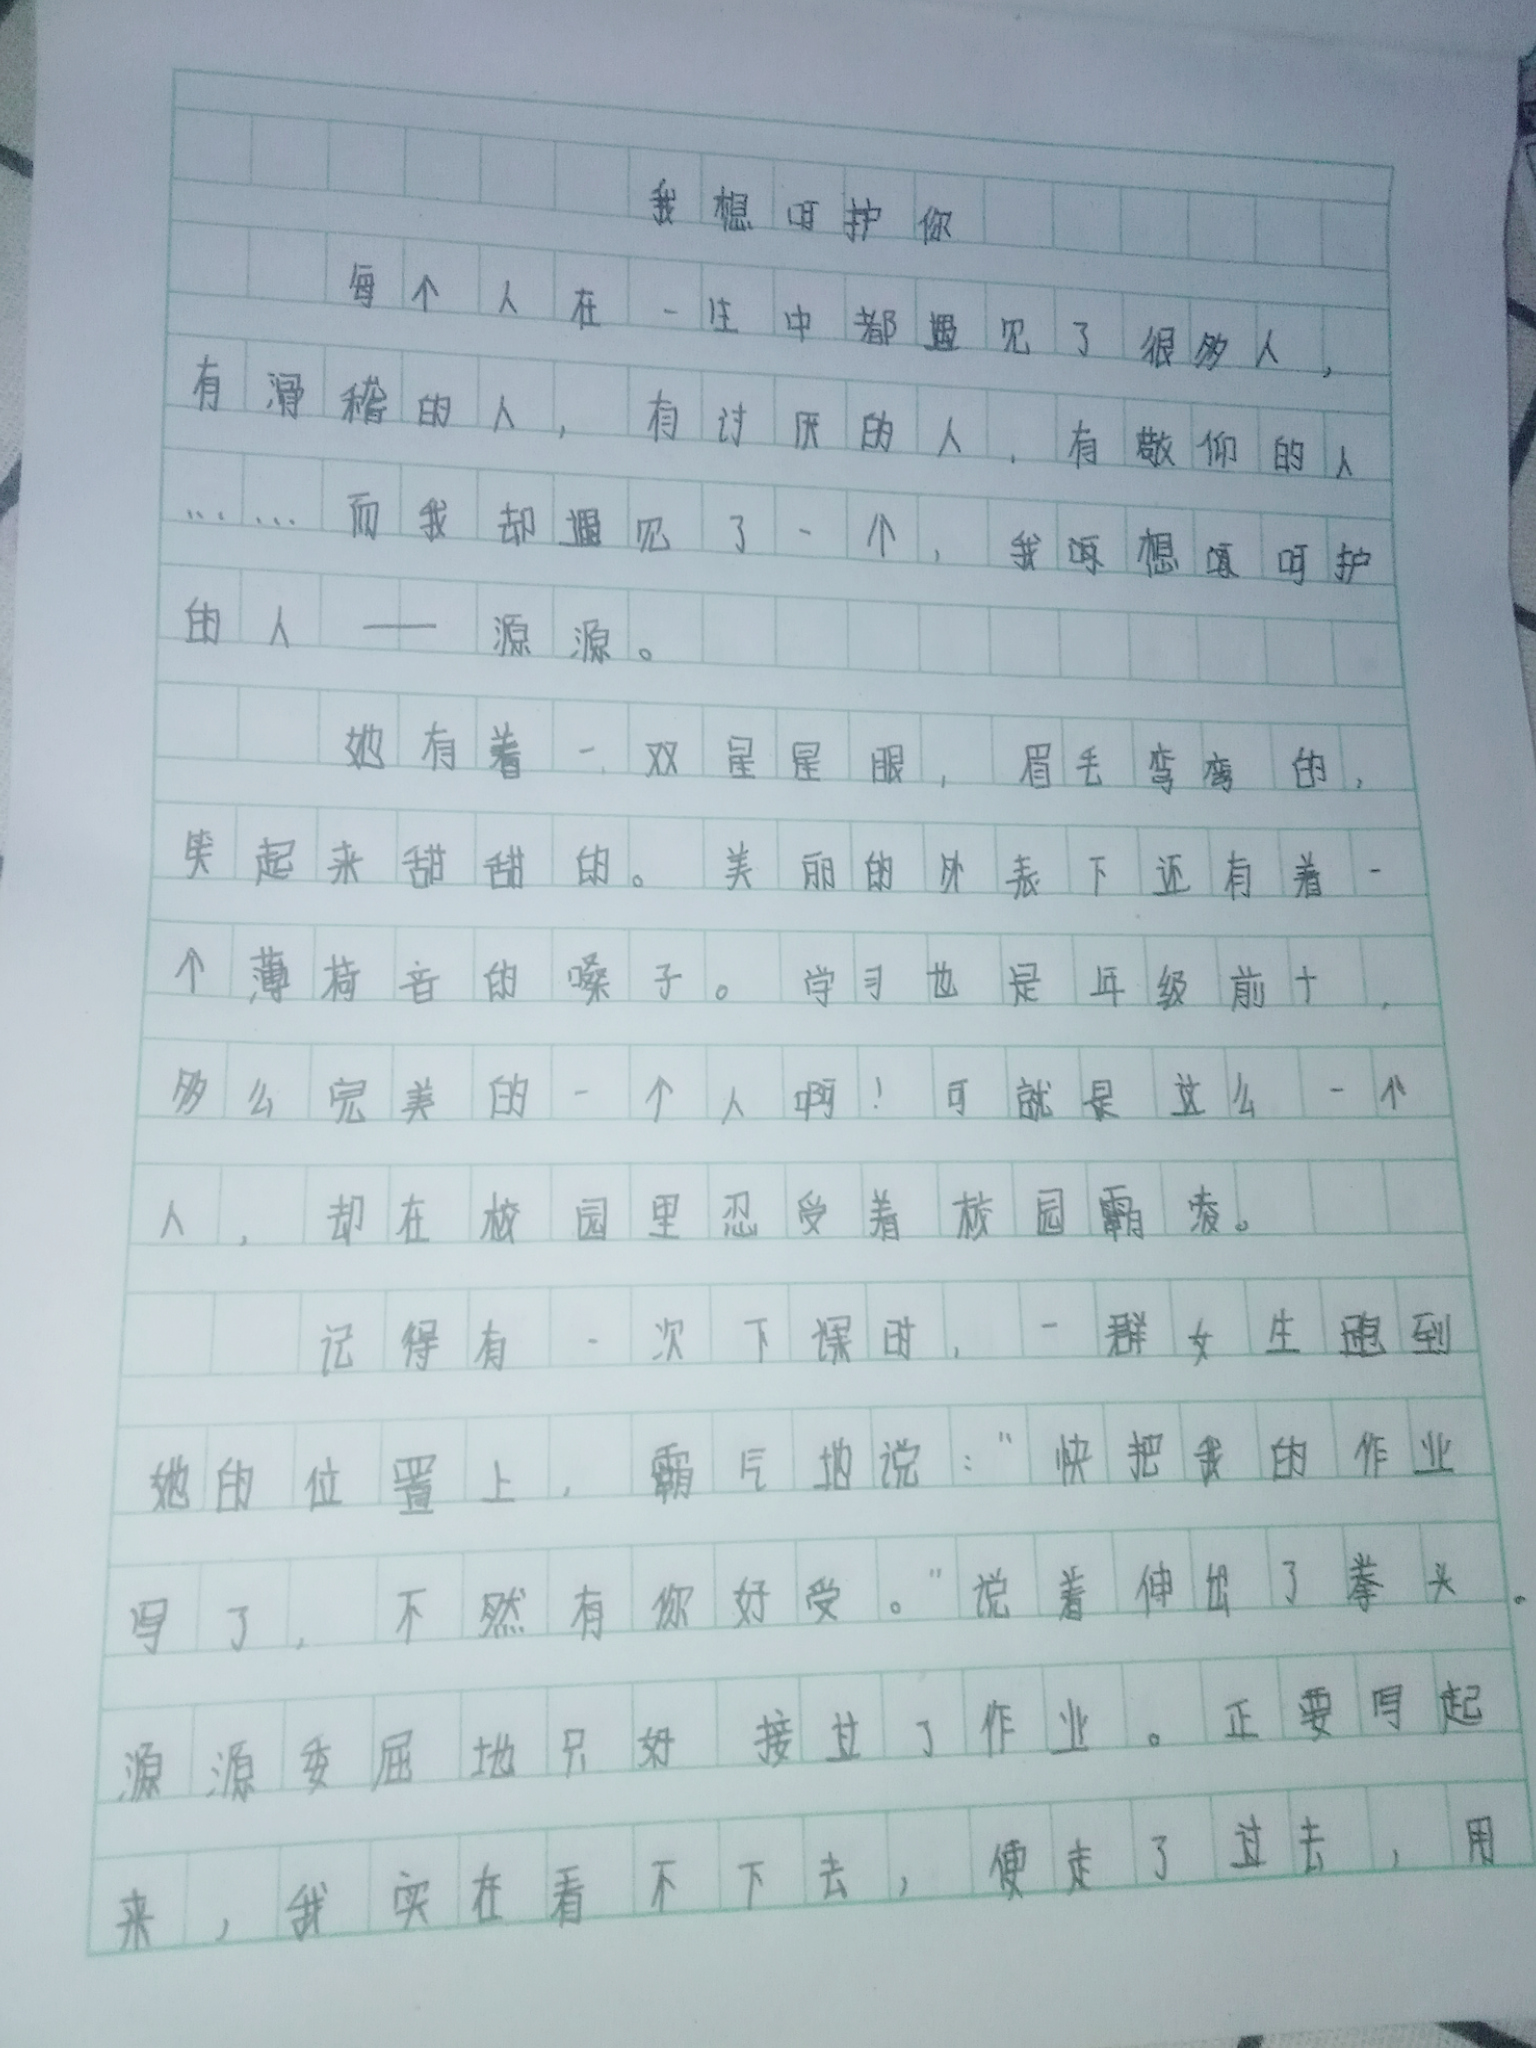 我想呵护你
每个人在一生中都遇见了很多人，
有滑稽的人，有讨厌的人，有敬仰的人
……而我却遇见了一个，我想呵护
的人——源源。
她有着一双星星眼，眉毛弯弯的，
笑起来甜甜的。美丽的外表下还有着一
个薄荷音的嗓子。学习也是年级前十，
多么完美的一个人啊！可就是这么一个
人，却在校园里忍受着校园霸凌。
记得有一次下课时，一群女生跑到
她的位置上，霸气地说：“快把我的作业
写了，不然有你好受。”说着伸出了拳头。
源源委屈地只好接过了作业。正要写起
来，我实在看不下去，便走了过去，用